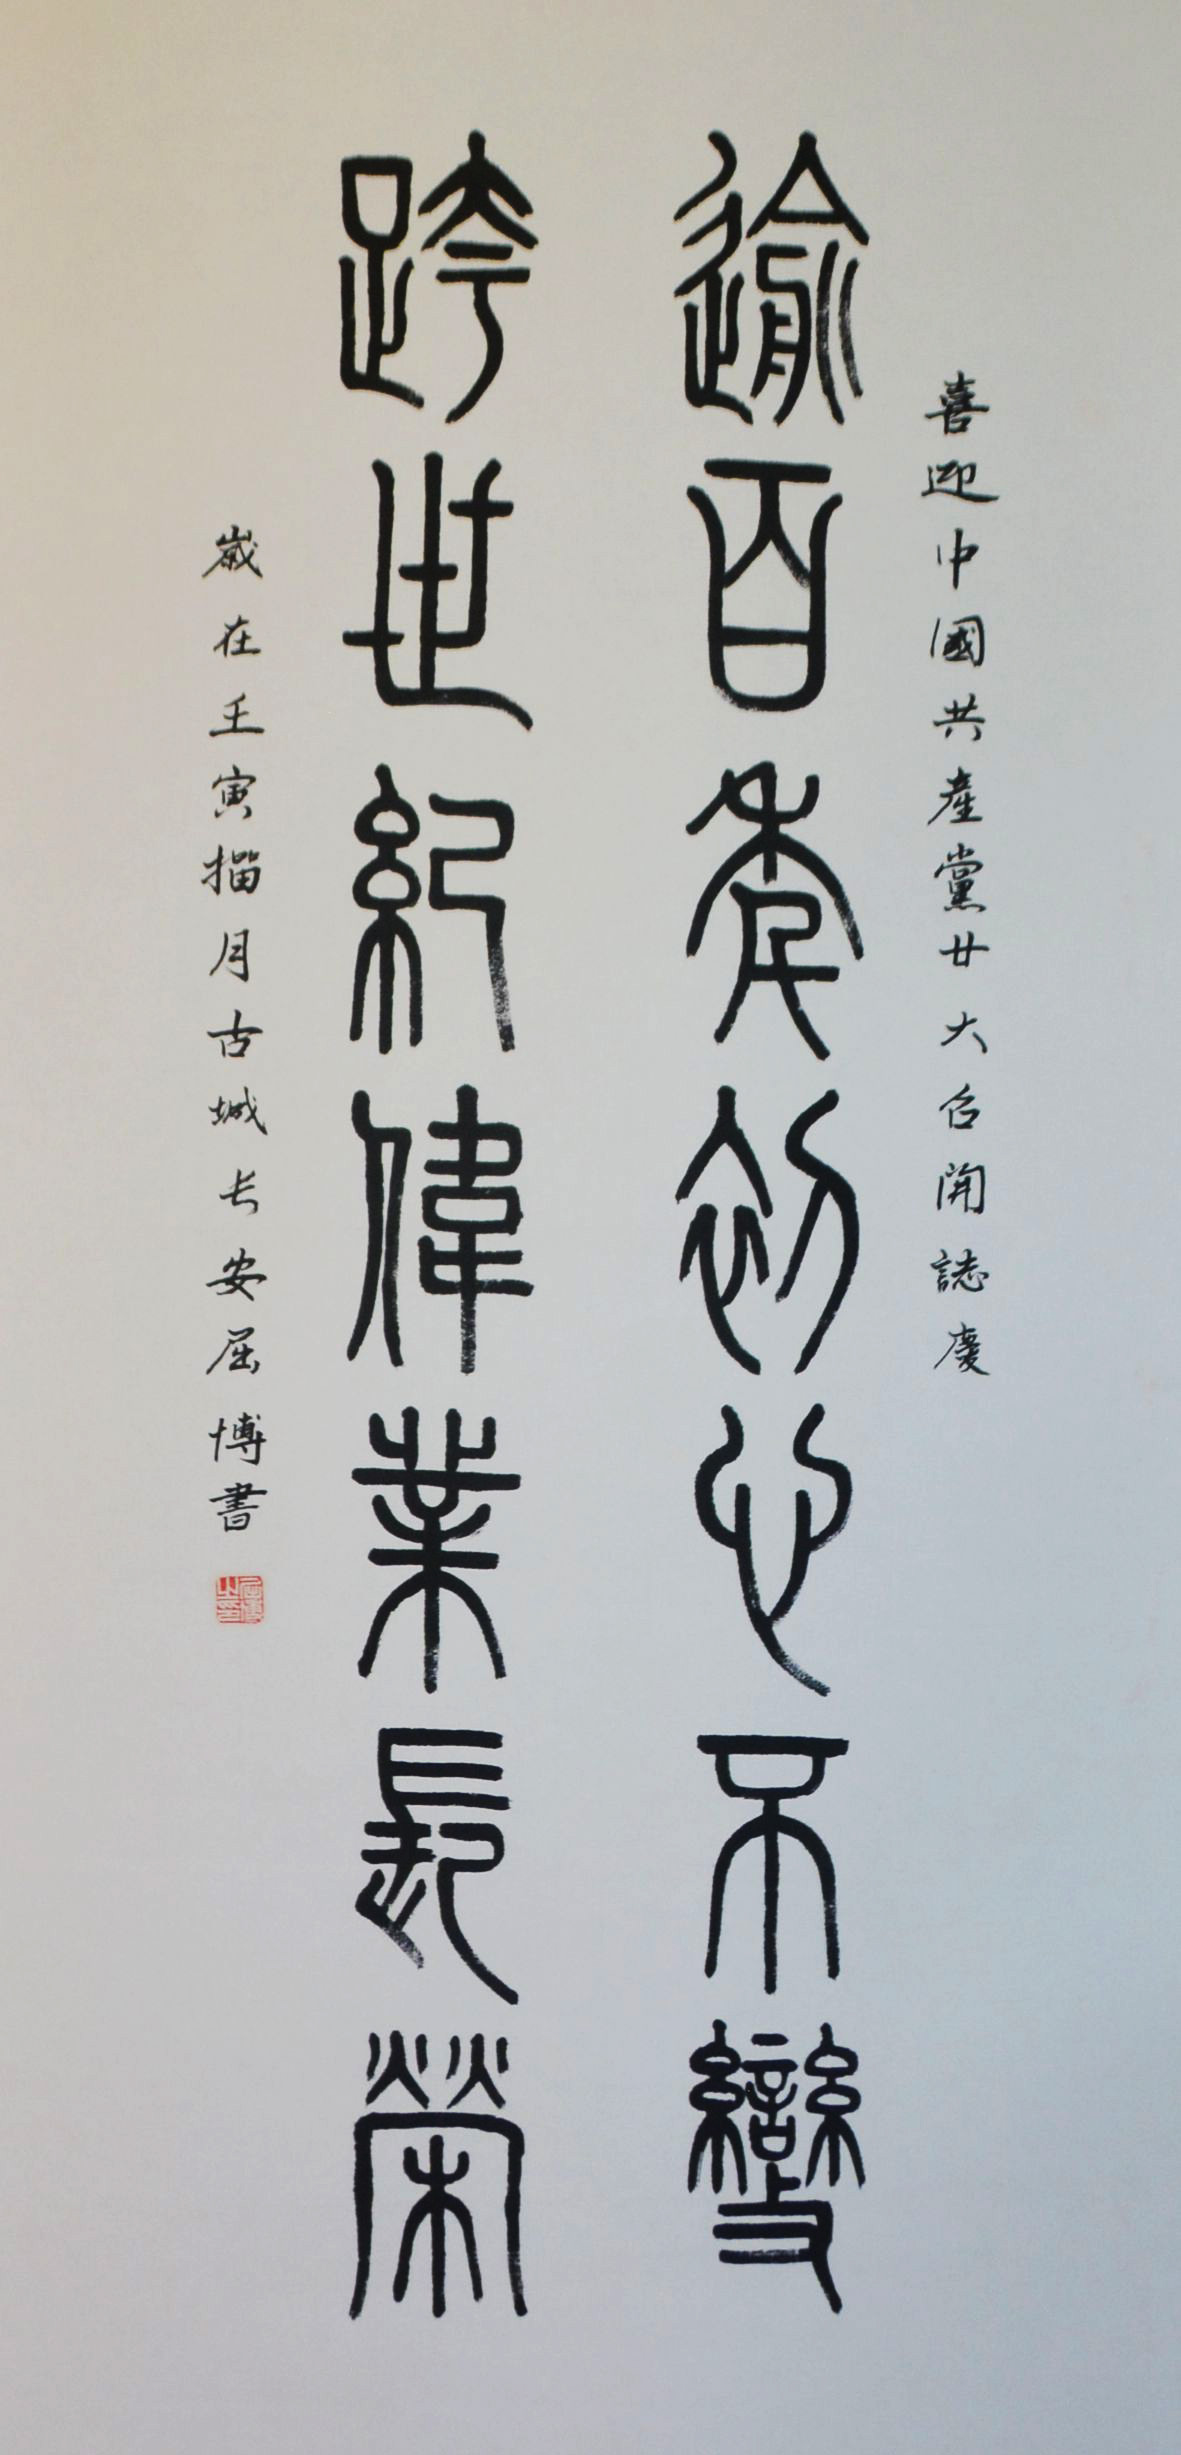 喜迎中國共産黨廿大召開誌慶
逾百年初心不變
跨世紀偉業長榮
歲在壬寅榴月古城长安屈博書
屈博之印